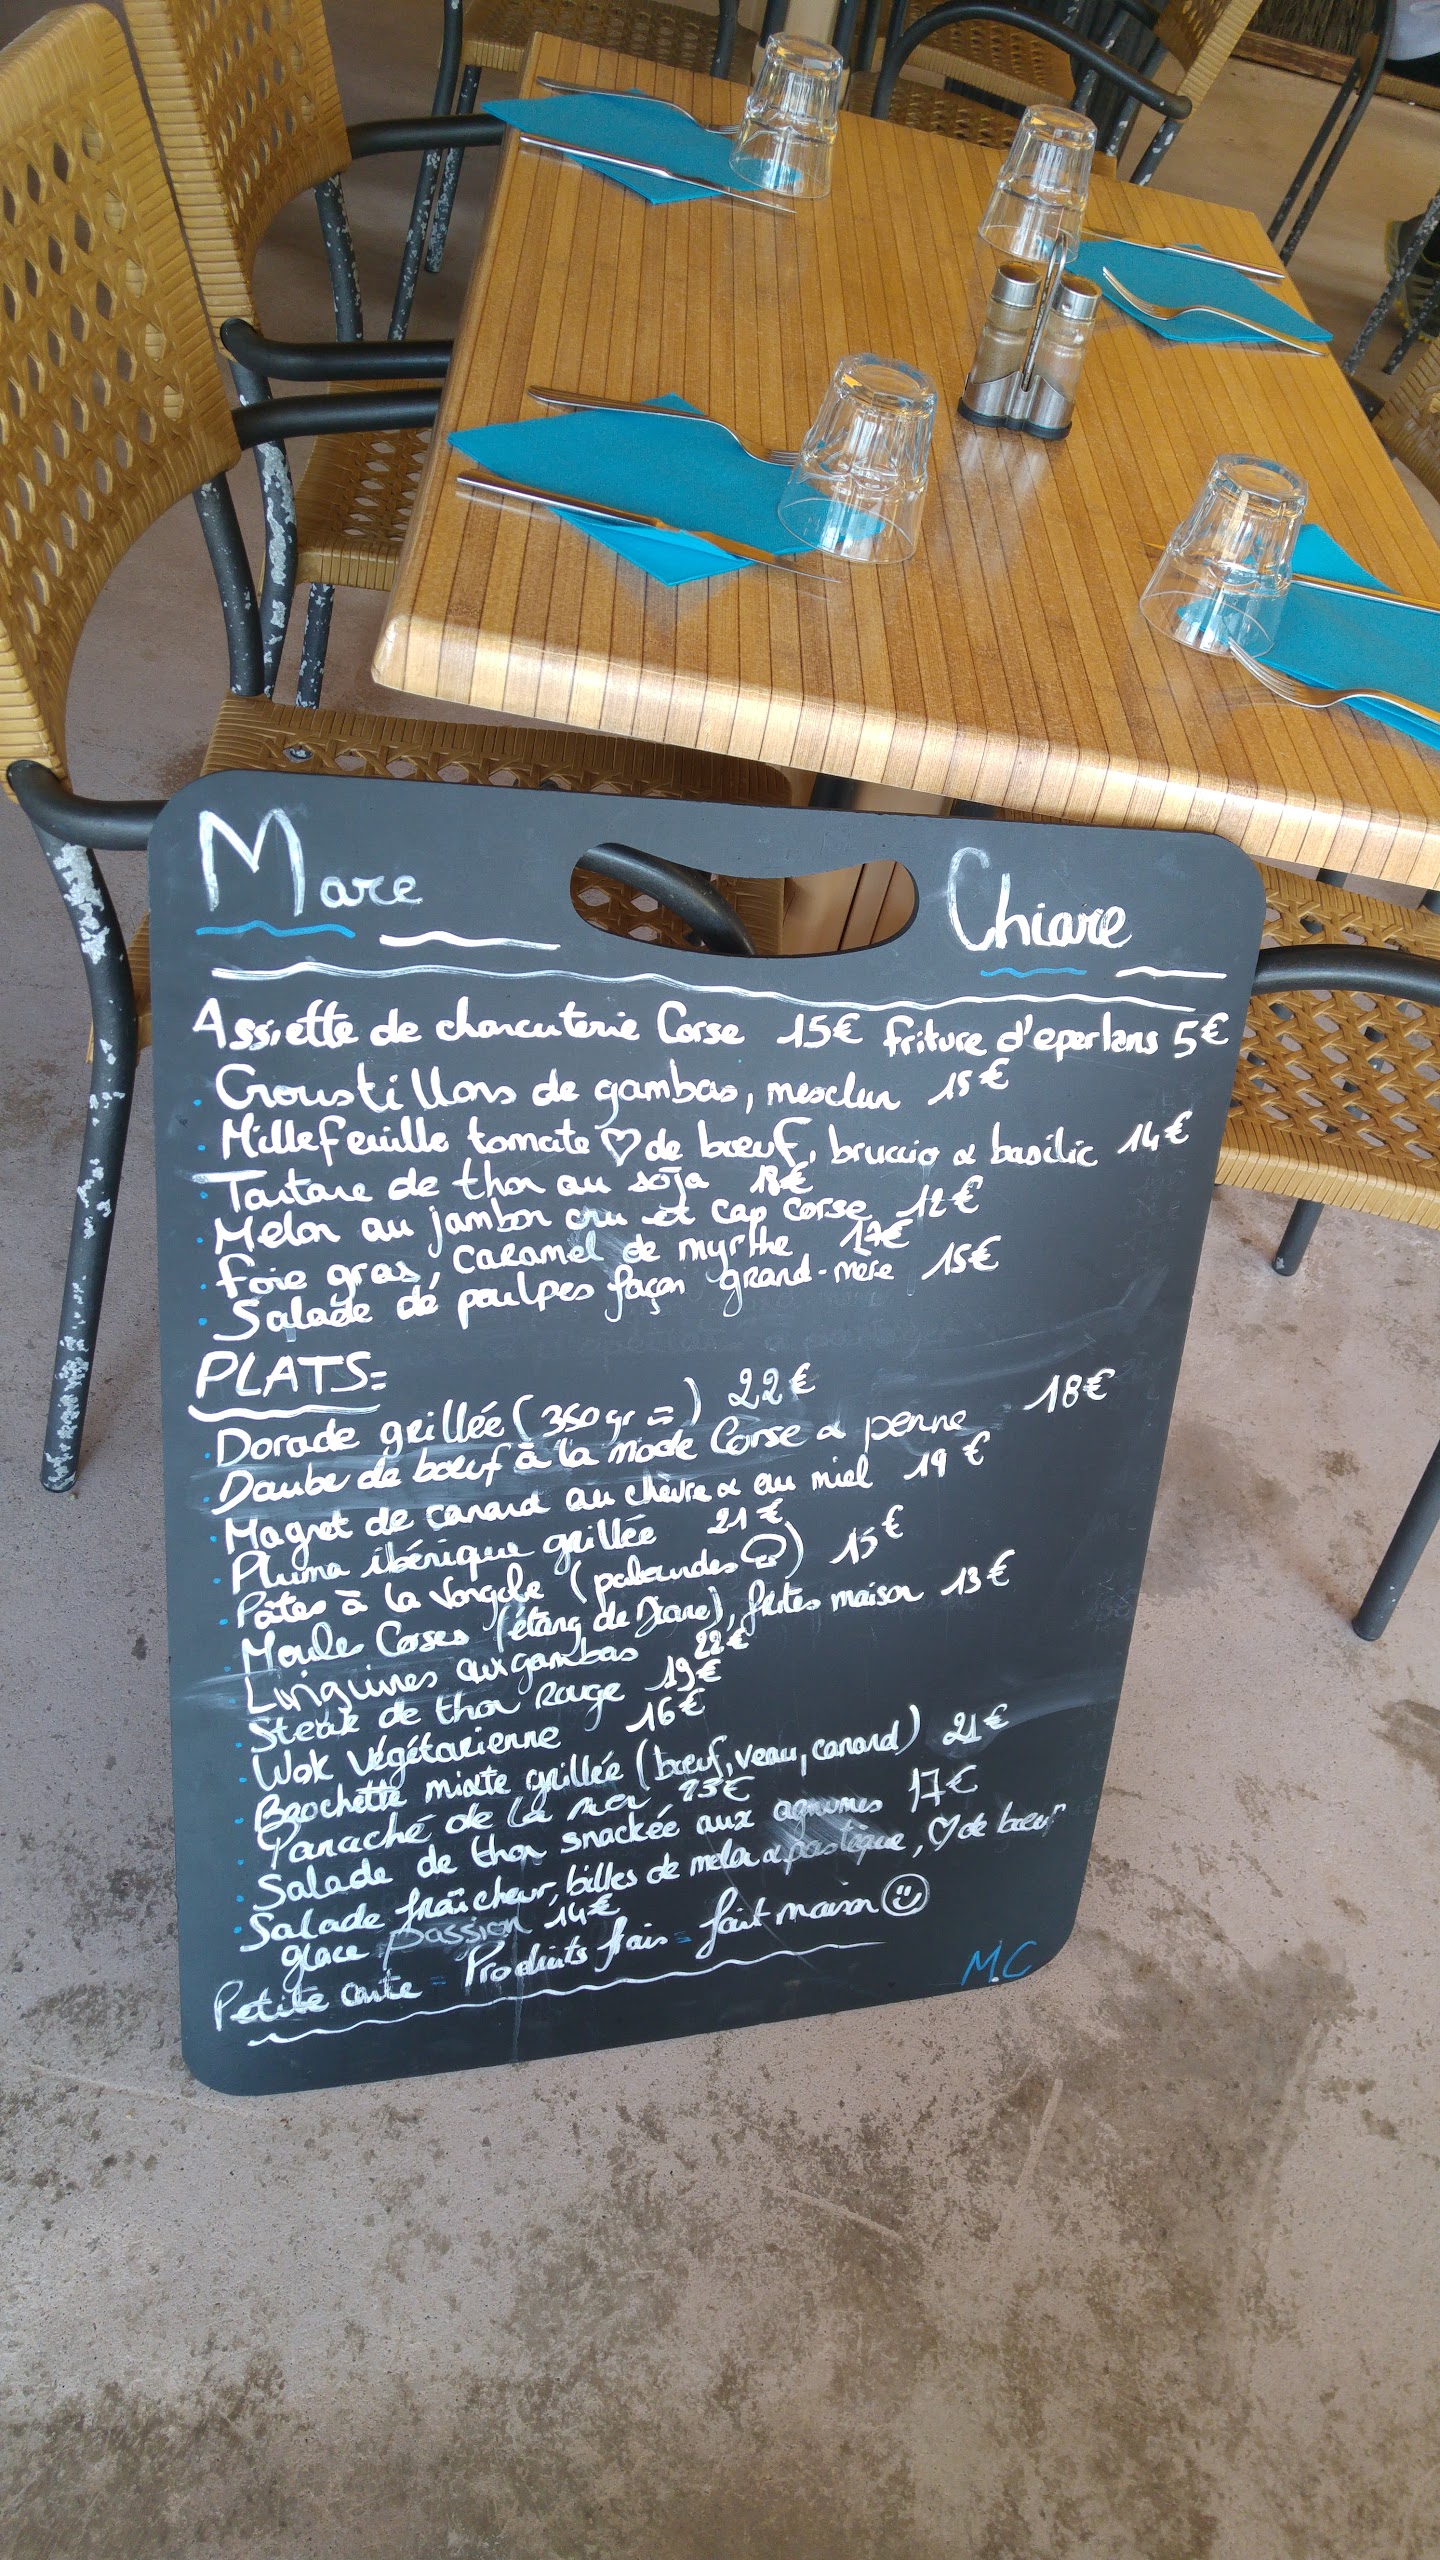 Mare Chiare
Assiette de charcuterie Corse 15€ friture d'eperlans 5€
Croustillons de gambas, mesclun 15€
Millefeuille tomate ♡ de bœuf, bruccio & basilic 14€
Tartare de thon au soja 18€
Melon au jambon cru et cap corse 12€
Foie gras, caramel de myrthe 17€
Salade de poulpes façon grand-mère 15€
PLATS=
Dorade grillée (350gr =) 22€
Daube de bœuf à la mode Corse & penne 18€
Magret de canard au chèvre & au miel 19€
Pluma ibérique grillée 21€
Pâtes à la Vongole (palourdes) 15€
Moule Corses (étang de Diane), frites maison 13€
Linguines aux gambas 22€
Steak de thon Rouge 19€
Wok Végétarienne 16€
Brochette mixte grillée (bœuf, veau, canard) 21€
Panaché de la mer 23€
Salade de thon snackée aux agrumes 17€
Salade fraîcheur, billes de melon & pastèque, ♡ de bœuf
glace passion 14€
Petite carte = Produits frais = fait maison
M.C